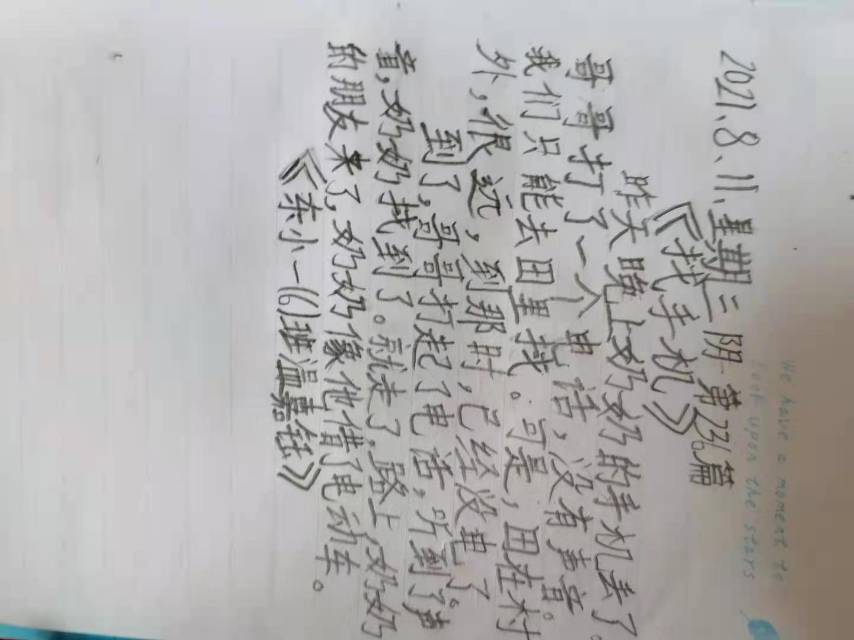 We have a moment to
look upon the stars
2021.8.11.星期三 阴 第236篇
《找手机》
昨天晚上奶奶的手机丢了。
哥哥打了一个电话，没有声音。
我们只能去田里找。可是，田在村
外，很远，到那时，已经没电了。
到了，哥哥打起了电话，听到了声
音，奶奶找到了。就走了，路上，奶奶
的朋友来了，奶奶像他借了电动车。
《东小一(6)班温嘉钰》